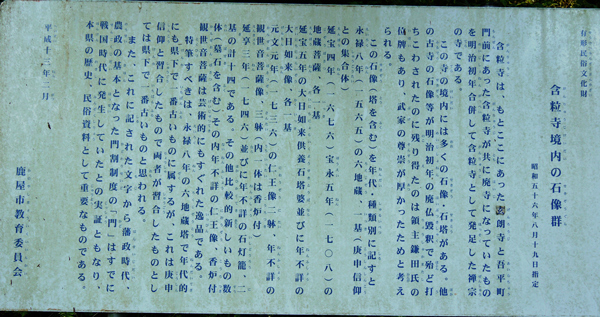 有形民俗文化財
含粒寺境内の石像群
昭和五十六年八月十九日指定
含粒寺は、もとここにあった朗寺と吾平町
門前にあった含粒寺が共に廃寺になっていたもの
を明治初年合併して含粒寺として発足した禅宗
の寺である。
この寺の境内には多くの石像・石塔がある。他
の古寺の石像等が明治初年の廃仏毀釈で殆ど打
ちこわされたのに残り得たのは領主鎌田氏の
位牌もあり、武家の尊崇が厚かったためと考え
られる。
この石像(塔を含む)を年代・種類別に記すと
永禄八年(一五六五)の六地蔵、一基(庚申信仰
との集合体)
延宝四年(一六七六)宝永五年(一七〇八)の
地蔵菩薩、各一基
延宝五年の大日如来供養石塔婆並びに年不詳の
大日如来像、各一基
元文元年(一七三六)の仁王像二躰、年不詳の
観世音菩薩像、三躰(内一体は香炉付)
延享三年(一七四六)並びに年不詳の石灯籠、二
基の計十四である。その他比較的新しいもの数
体(墓石を含む)その内年不詳の仁王像、香炉付
観世音菩薩は芸術的にもすぐれた逸品である。
特筆すべきは、永禄八年の六地蔵塔で年代的
にも県下で一番古いものに属するが、これは庚申
信仰と習合したもので両者が習合したものとし
ては県下で一番古いものと思われる。
また、これに記された文字から藩政時代、
農政の基本となった門割制度の「門」はすでに
戦国時代に発生していたとの実証ともなり、
本県の歴史、民俗資料として重要なものである。
平成十三年一月
鹿屋市教育委員会